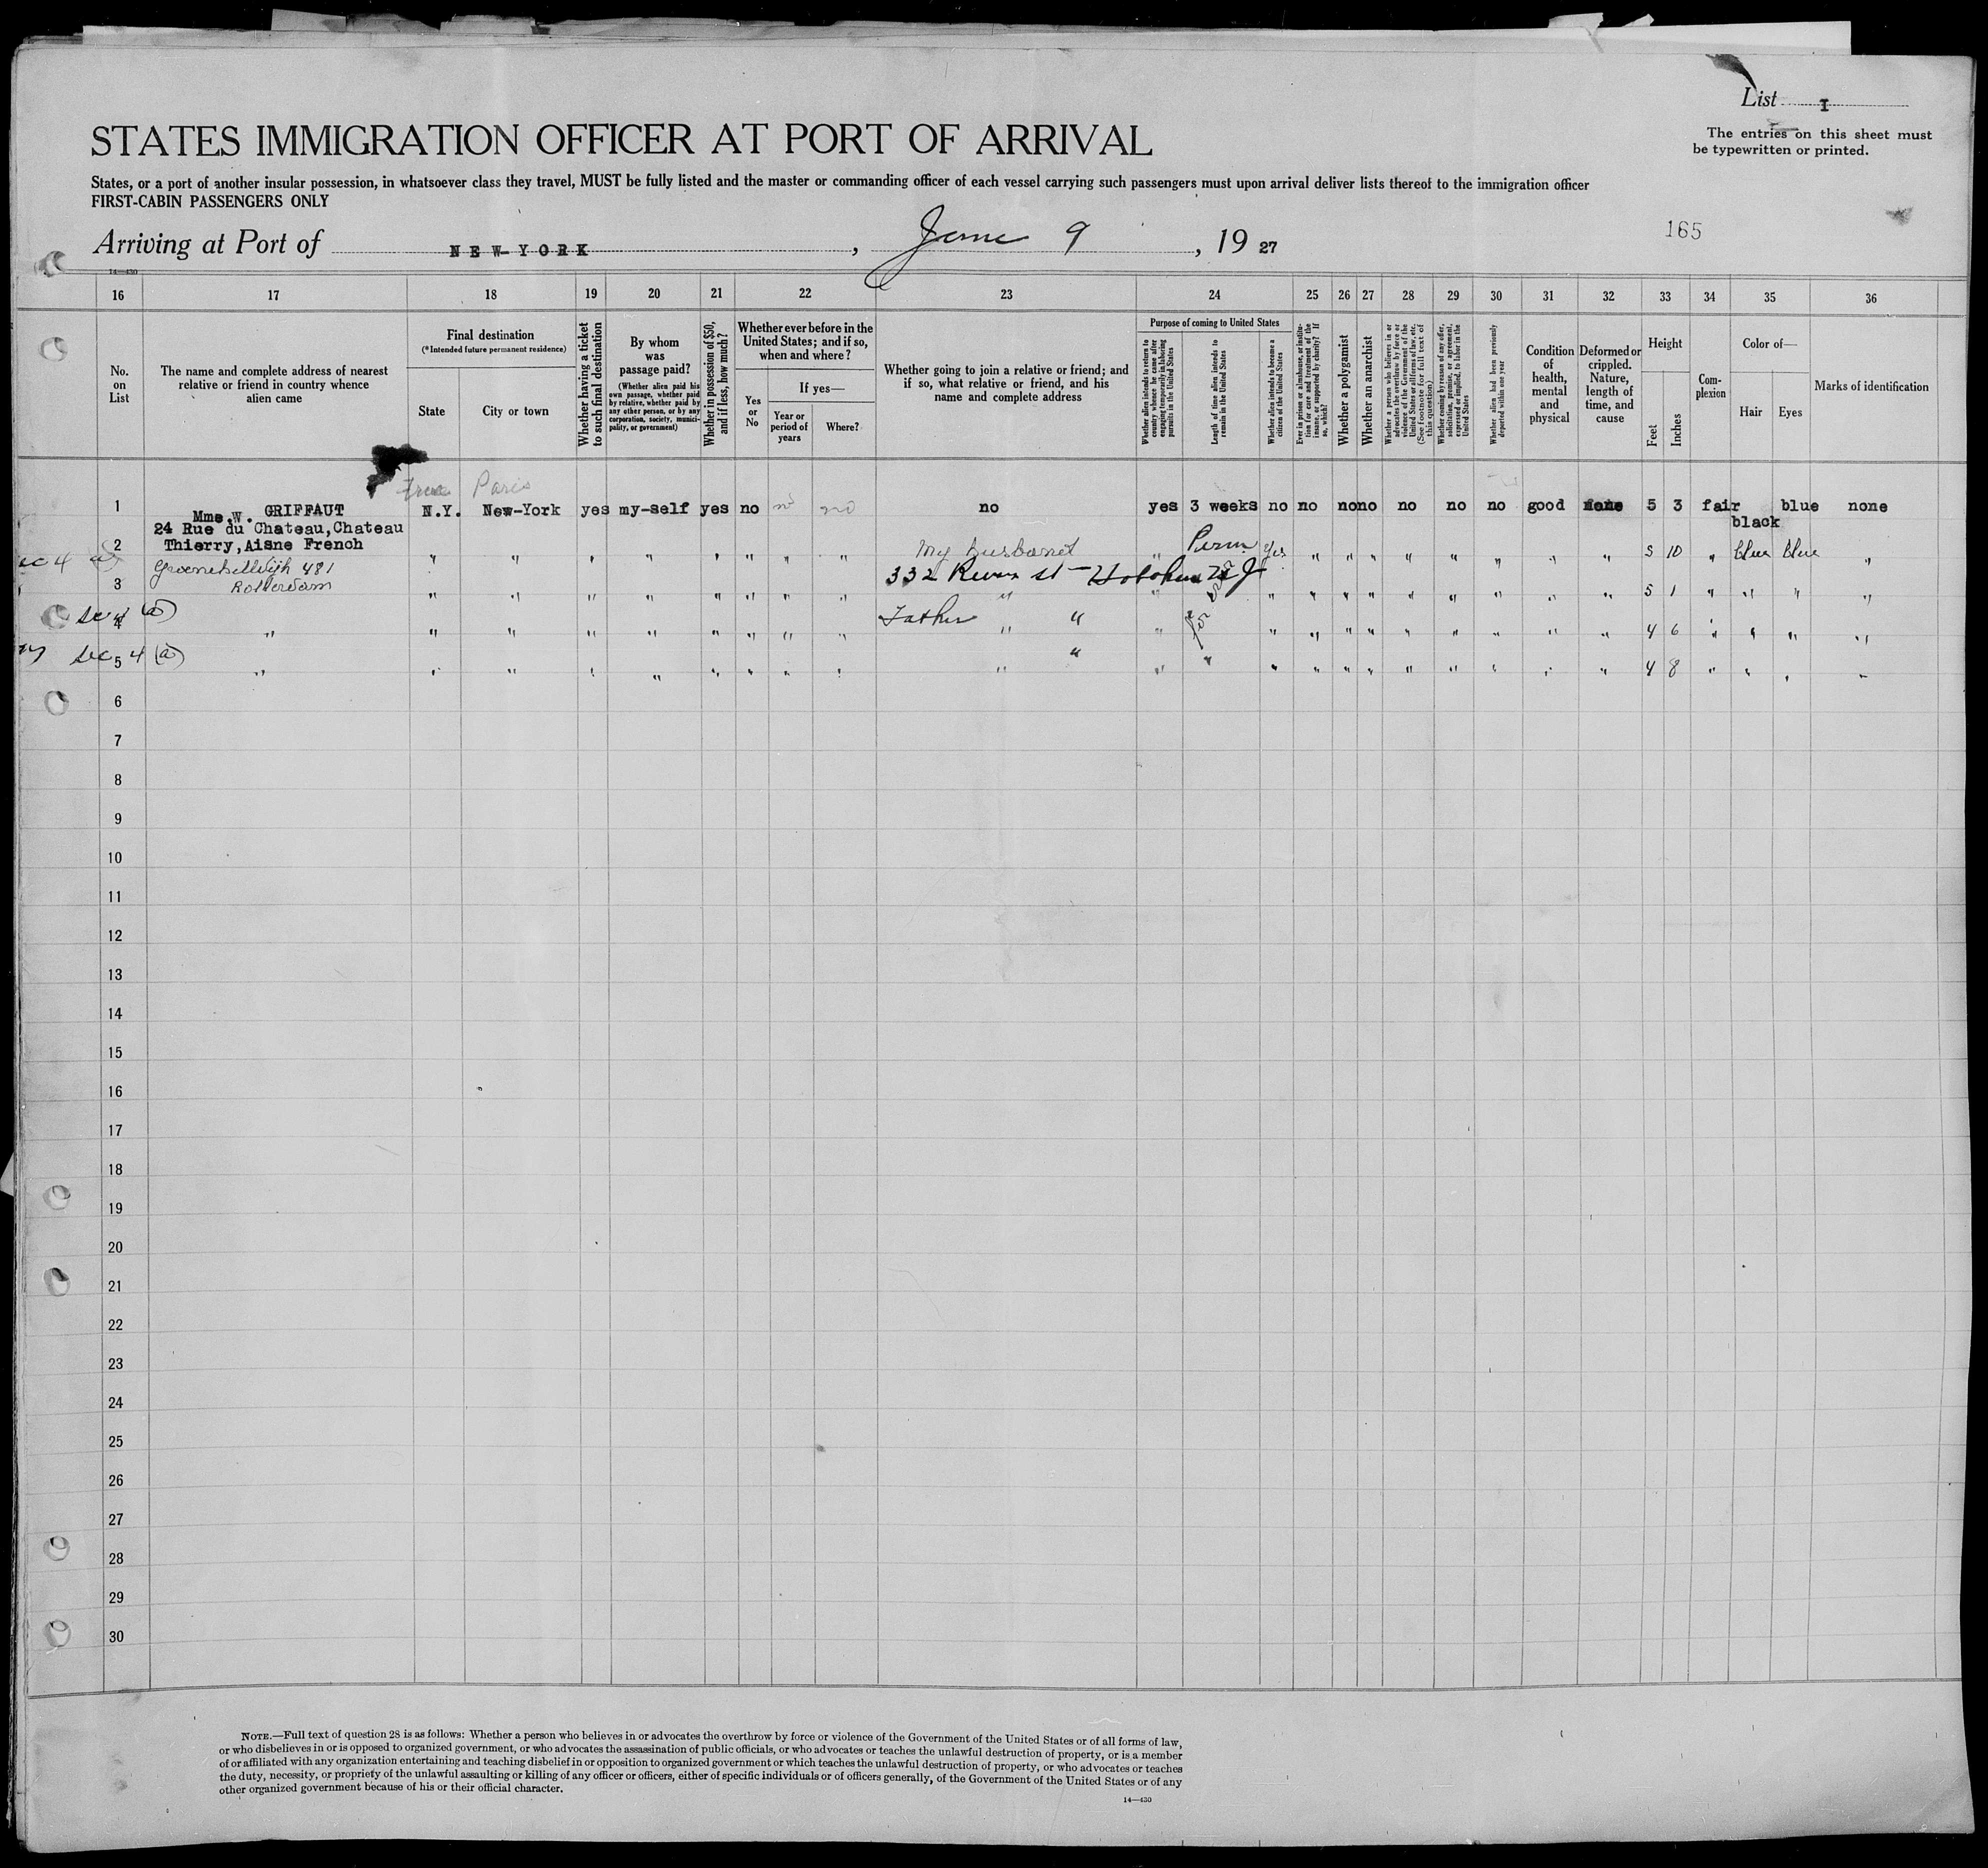 List I
The entries on this sheet must
be typewritten or printed.
STATES IMMIGRATION OFFICER AT PORT OF ARRIVAL
States, or a port of another insular possession, in whatsoever class they travel, MUST be fully listed and the master or commanding officer of each vessel carrying such passengers must upon arrival deliver lists thereof to the immigration officer
FIRST-CABIN PASSENGERS ONLY
165
Arriving at Port of NEW-YORK, June 9, 19 27
14—430
16 17 18 19 20 21 22 23 24 25 26 27 28 29 30 31 32 33 34 35 36
No. on List
The name and complete address of nearest relative or friend in country whence alien came
Final destination
(*Intended future permanent residence)
State
City or town
Whether having a ticket to such final destination
By whom was passage paid?
(Whether alien paid his own passage, whether paid by relative, whether paid by any other person, or by any corporation, society, municipality, or government)
Whether in possession of $50, and if less, how much?
Whether ever before in the United States; and if so, when and where?
Yes or No
If yes—
Year or period of years
Where?
Whether going to join a relative or friend; and if so, what relative or friend, and his name and complete address
Purpose of coming to United States
Whether alien intends to return to country whence he came after engaging temporarily in laboring pursuits in the United States
Length of time alien intends to remain in the United States
Whether alien intends to become a citizen of the United States
Ever in prison or almshouse, or institution for care and treatment of the insane, or supported by charity? If so, which?
Whether a polygamist
Whether an anarchist
Whether a person who believes in or advocates the overthrow by force or violence of the Government of the United States or all forms of law, etc. (See footnote for full text of this question)
Whether coming by reason of any offer, solicitation, promise, or agreement, expressed or implied, to labor in the United States
Whether alien had been previously deported within one year
Condition of health, mental and physical
Deformed or crippled. Nature, length of time, and cause
Height
Feet
Inches
Complexion
Color of—
Hair
Eyes
Marks of identification
Paris
1 Mme. W. GRIFFAUT N.Y. New-York yes my-self yes no no no no yes 3 weeks no no no no no no no good none 5 3 fair black blue none
24 Rue du Chateau, Chateau
2 Thierry, Aisne French " " " " " " " " My husband " Perm. Yes " " " " " " " " 5 10 " blue blue "
sec 4 (a) 481
332 River St - Hoboken N J
3 Rotterdam " " " " " " " " " " " " " " " " " " " 5 1 " " " "
sec 4 (a)
Father "
4 " " " " " " " " " " " " " " " " " " " " 4 6 " " " "
sec 4 (a) "
5 " " " " " " " " " " " " " " " " " " " " " 4 8 " " " "
6
7
8
9
10
11
12
13
14
15
16
17
18
19
20
21
22
23
24
25
26
27
28
29
30
NOTE.—Full text of question 28 is as follows: Whether a person who believes in or advocates the overthrow by force or violence of the Government of the United States or of all forms of law,
or who disbelieves in or is opposed to organized government, or who advocates the assassination of public officials, or who advocates or teaches the unlawful destruction of property, or is a member
of or affiliated with any organization entertaining and teaching disbelief in or opposition to organized government or which teaches the unlawful destruction of property, or who advocates or teaches
the duty, necessity, or propriety of the unlawful assaulting or killing of any officer or officers, either of specific individuals or of officers generally, of the Government of the United States or of any
other organized government because of his or their official character.
14—430